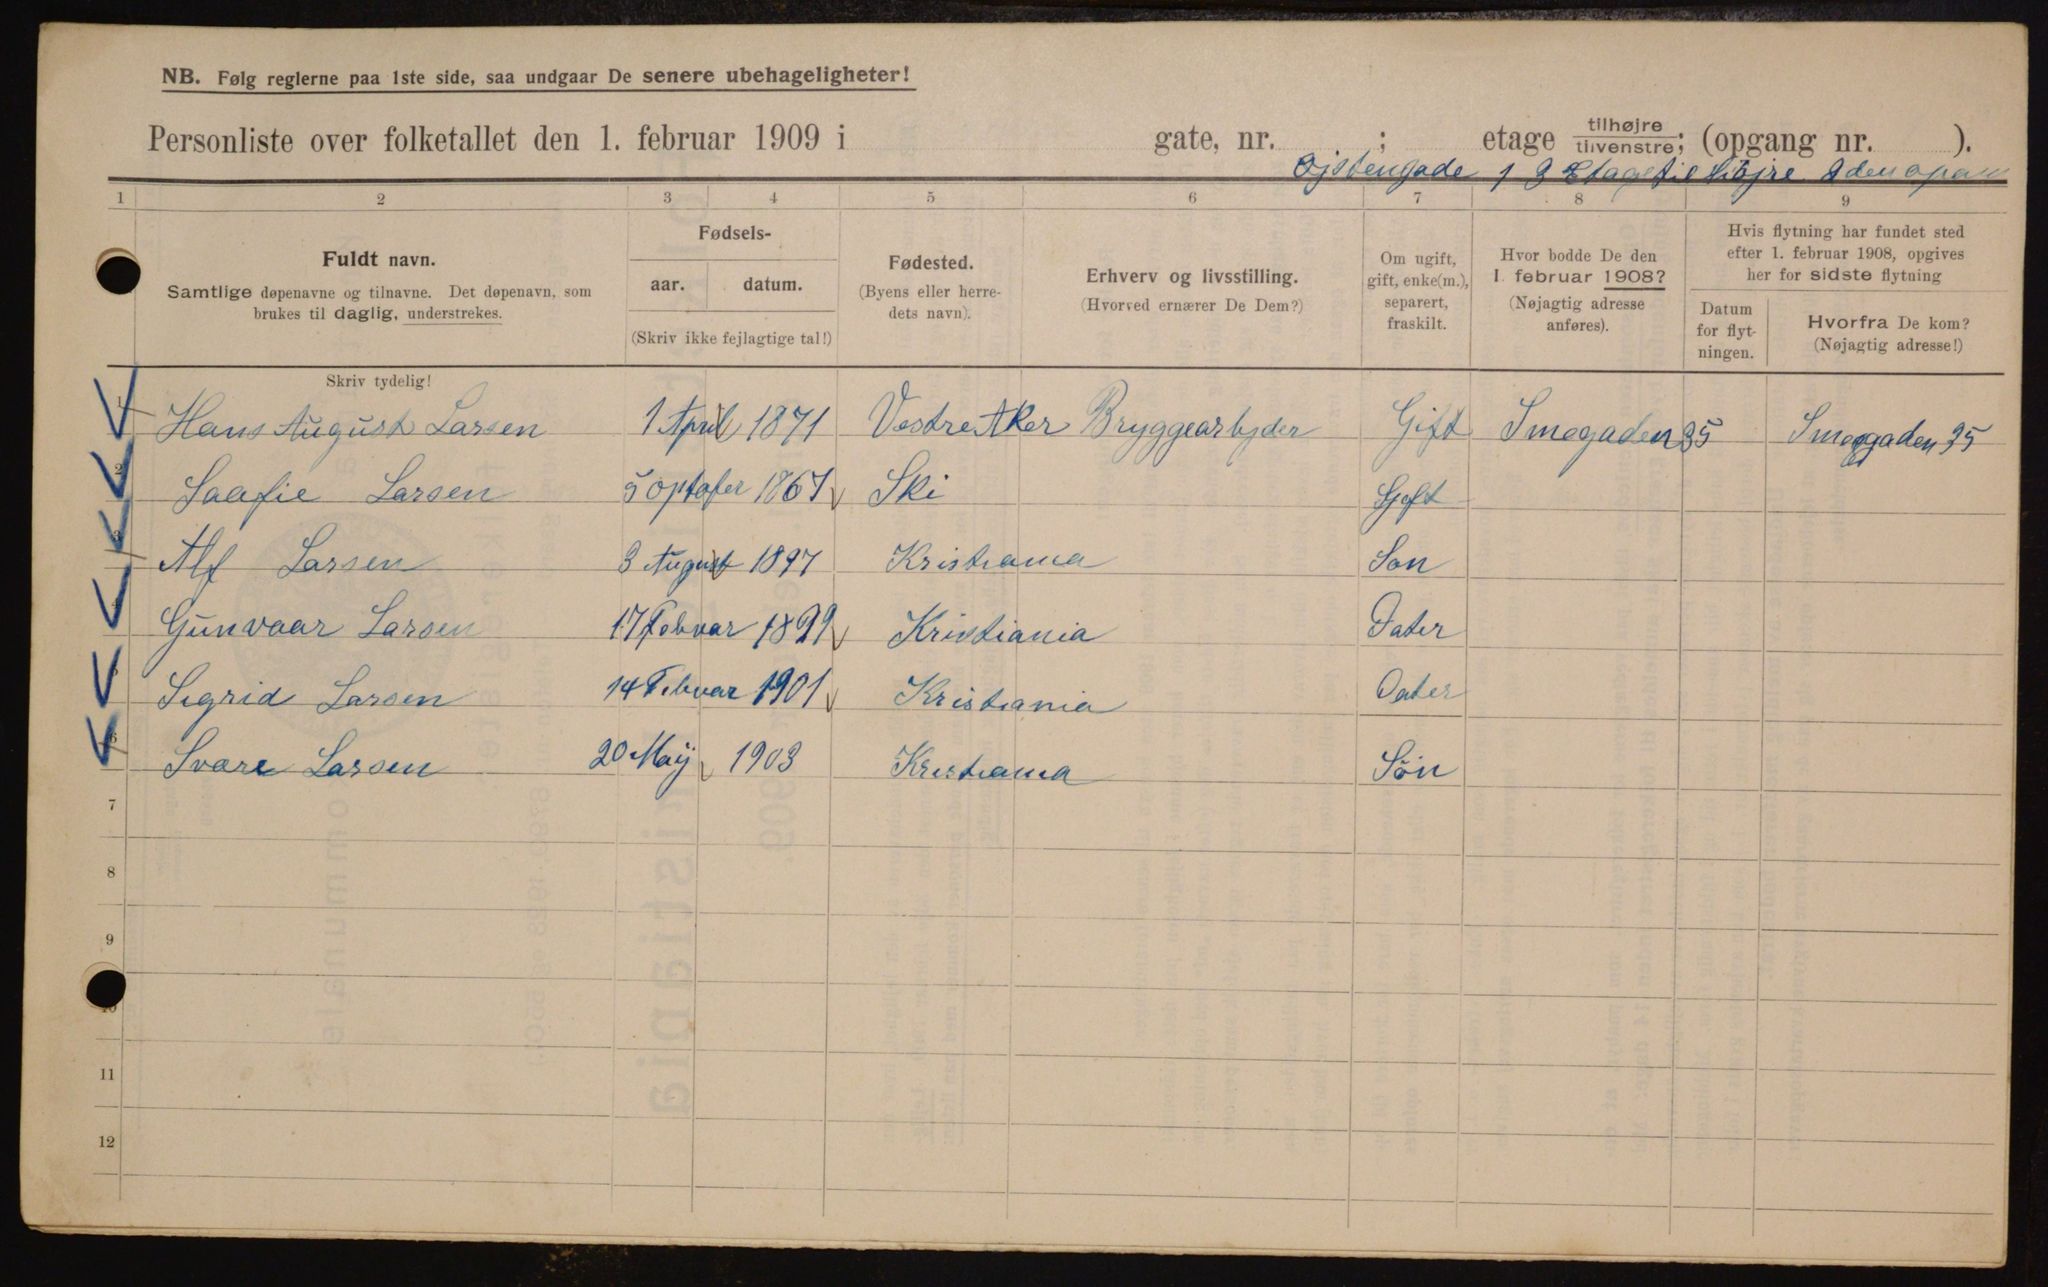 NB. Følg reglerne paa 1ste side, saa undgaar De senere ubehageligheter!
Personliste over folketallet den 1. februar 1909 i gate, nr. ; etage tilhøjre tilvenstre; (opgang nr. ).
1 3 Etage til Højre
1 2 3 4 5 6 7 8 9
Fuldt navn.
Samtlige døpenavne og tilnavne. Det døpenavn, som
brukes til daglig, understrekes.
Fødsels-
aar. datum.
(Skriv ikke fejlagtige tal!)
Fødested.
(Byens eller herre-
dets navn).
Erhverv og livsstilling.
(Hvorved ernærer De Dem?)
Om ugift,
gift, enke(m.),
separert,
fraskilt.
Hvor bodde De den
1. februar 1908?
(Nøjagtig adresse
anføres).
Hvis flytning har fundet sted
efter 1. februar 1908, opgives
her for sidste flytning
Datum
for flyt-
ningen.
Hvorfra De kom?
(Nøjagtig adresse!)
Skriv tydelig!
1 Hans August Larsen 1 April 1871 Vestre Aker Bryggearbyder Gift Smegaden 35 Smeggaden 35
2 Saafie Larsen 5 optofer 1867 Ski Gift
3 Alf Larsen 3 August 1897 Kristiania Søn
4 Gunvaar Larsen 17 Febuar 1899 Kristiania Dater
5 Sigrid Larsen 14 Febuar 1901 Kristiania Dater
6 Svare Larsen 20 Maij 1903 Kristiania Søn
7
8
9
10
11
12